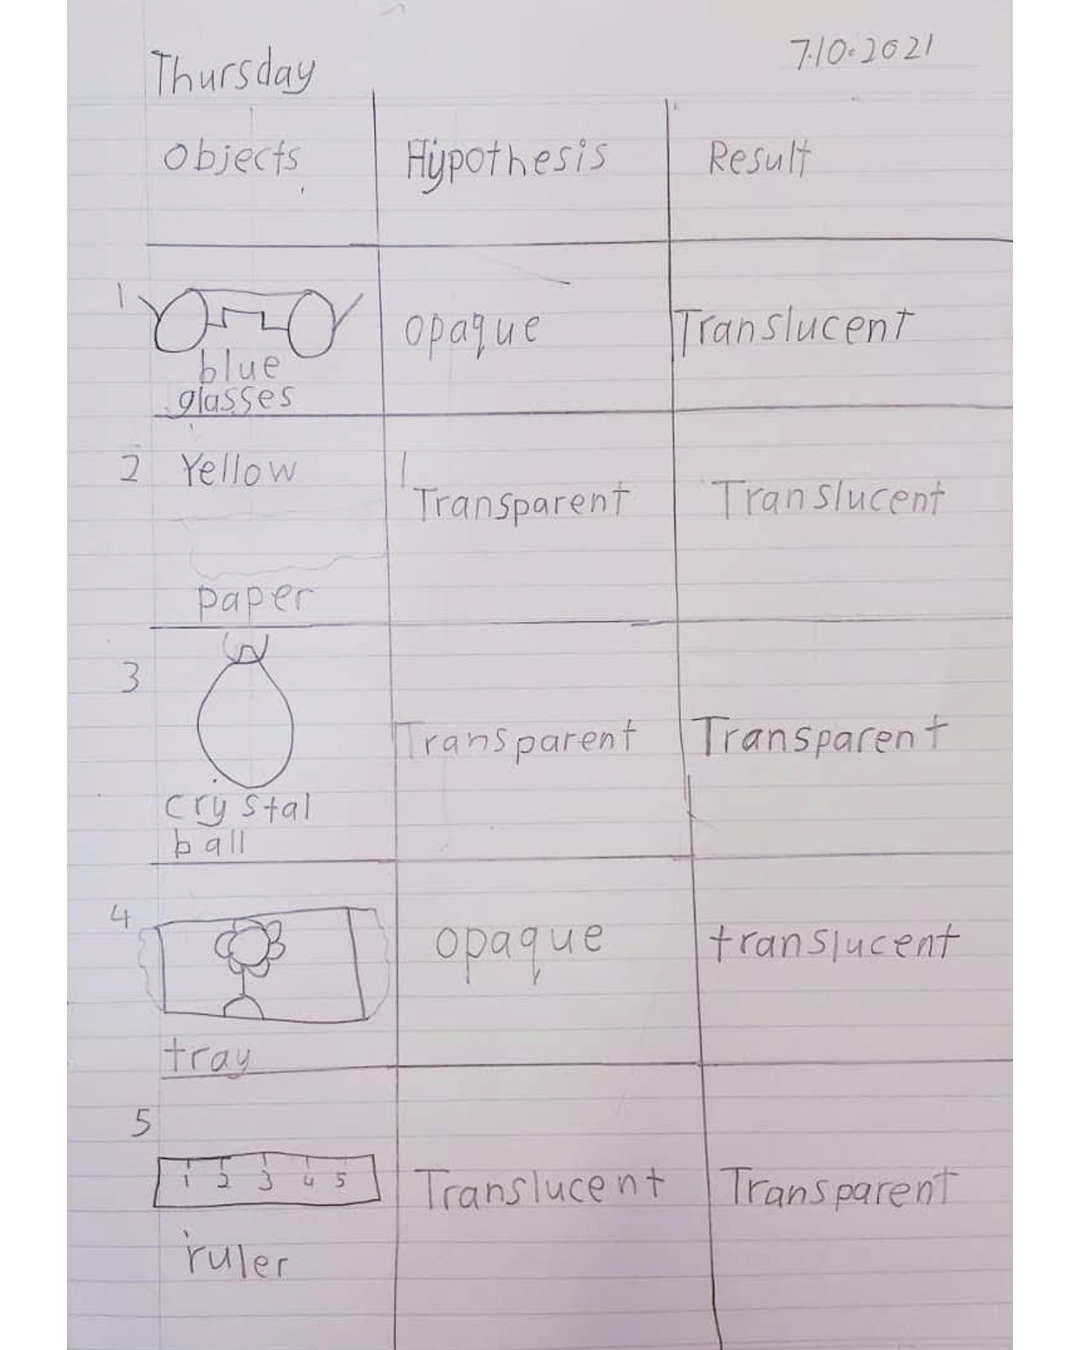 Thursday
7.10.2021
Objects
Hypothesis
Result
1
blue
glasses
opaque
Translucent
2
Yellow
paper
Transparent
Translucent
3
crystal
ball
Transparent
Transparent
4
tray
opaque
translucent
5
1 2 3 4 5
ruler
Translucent
Transparent